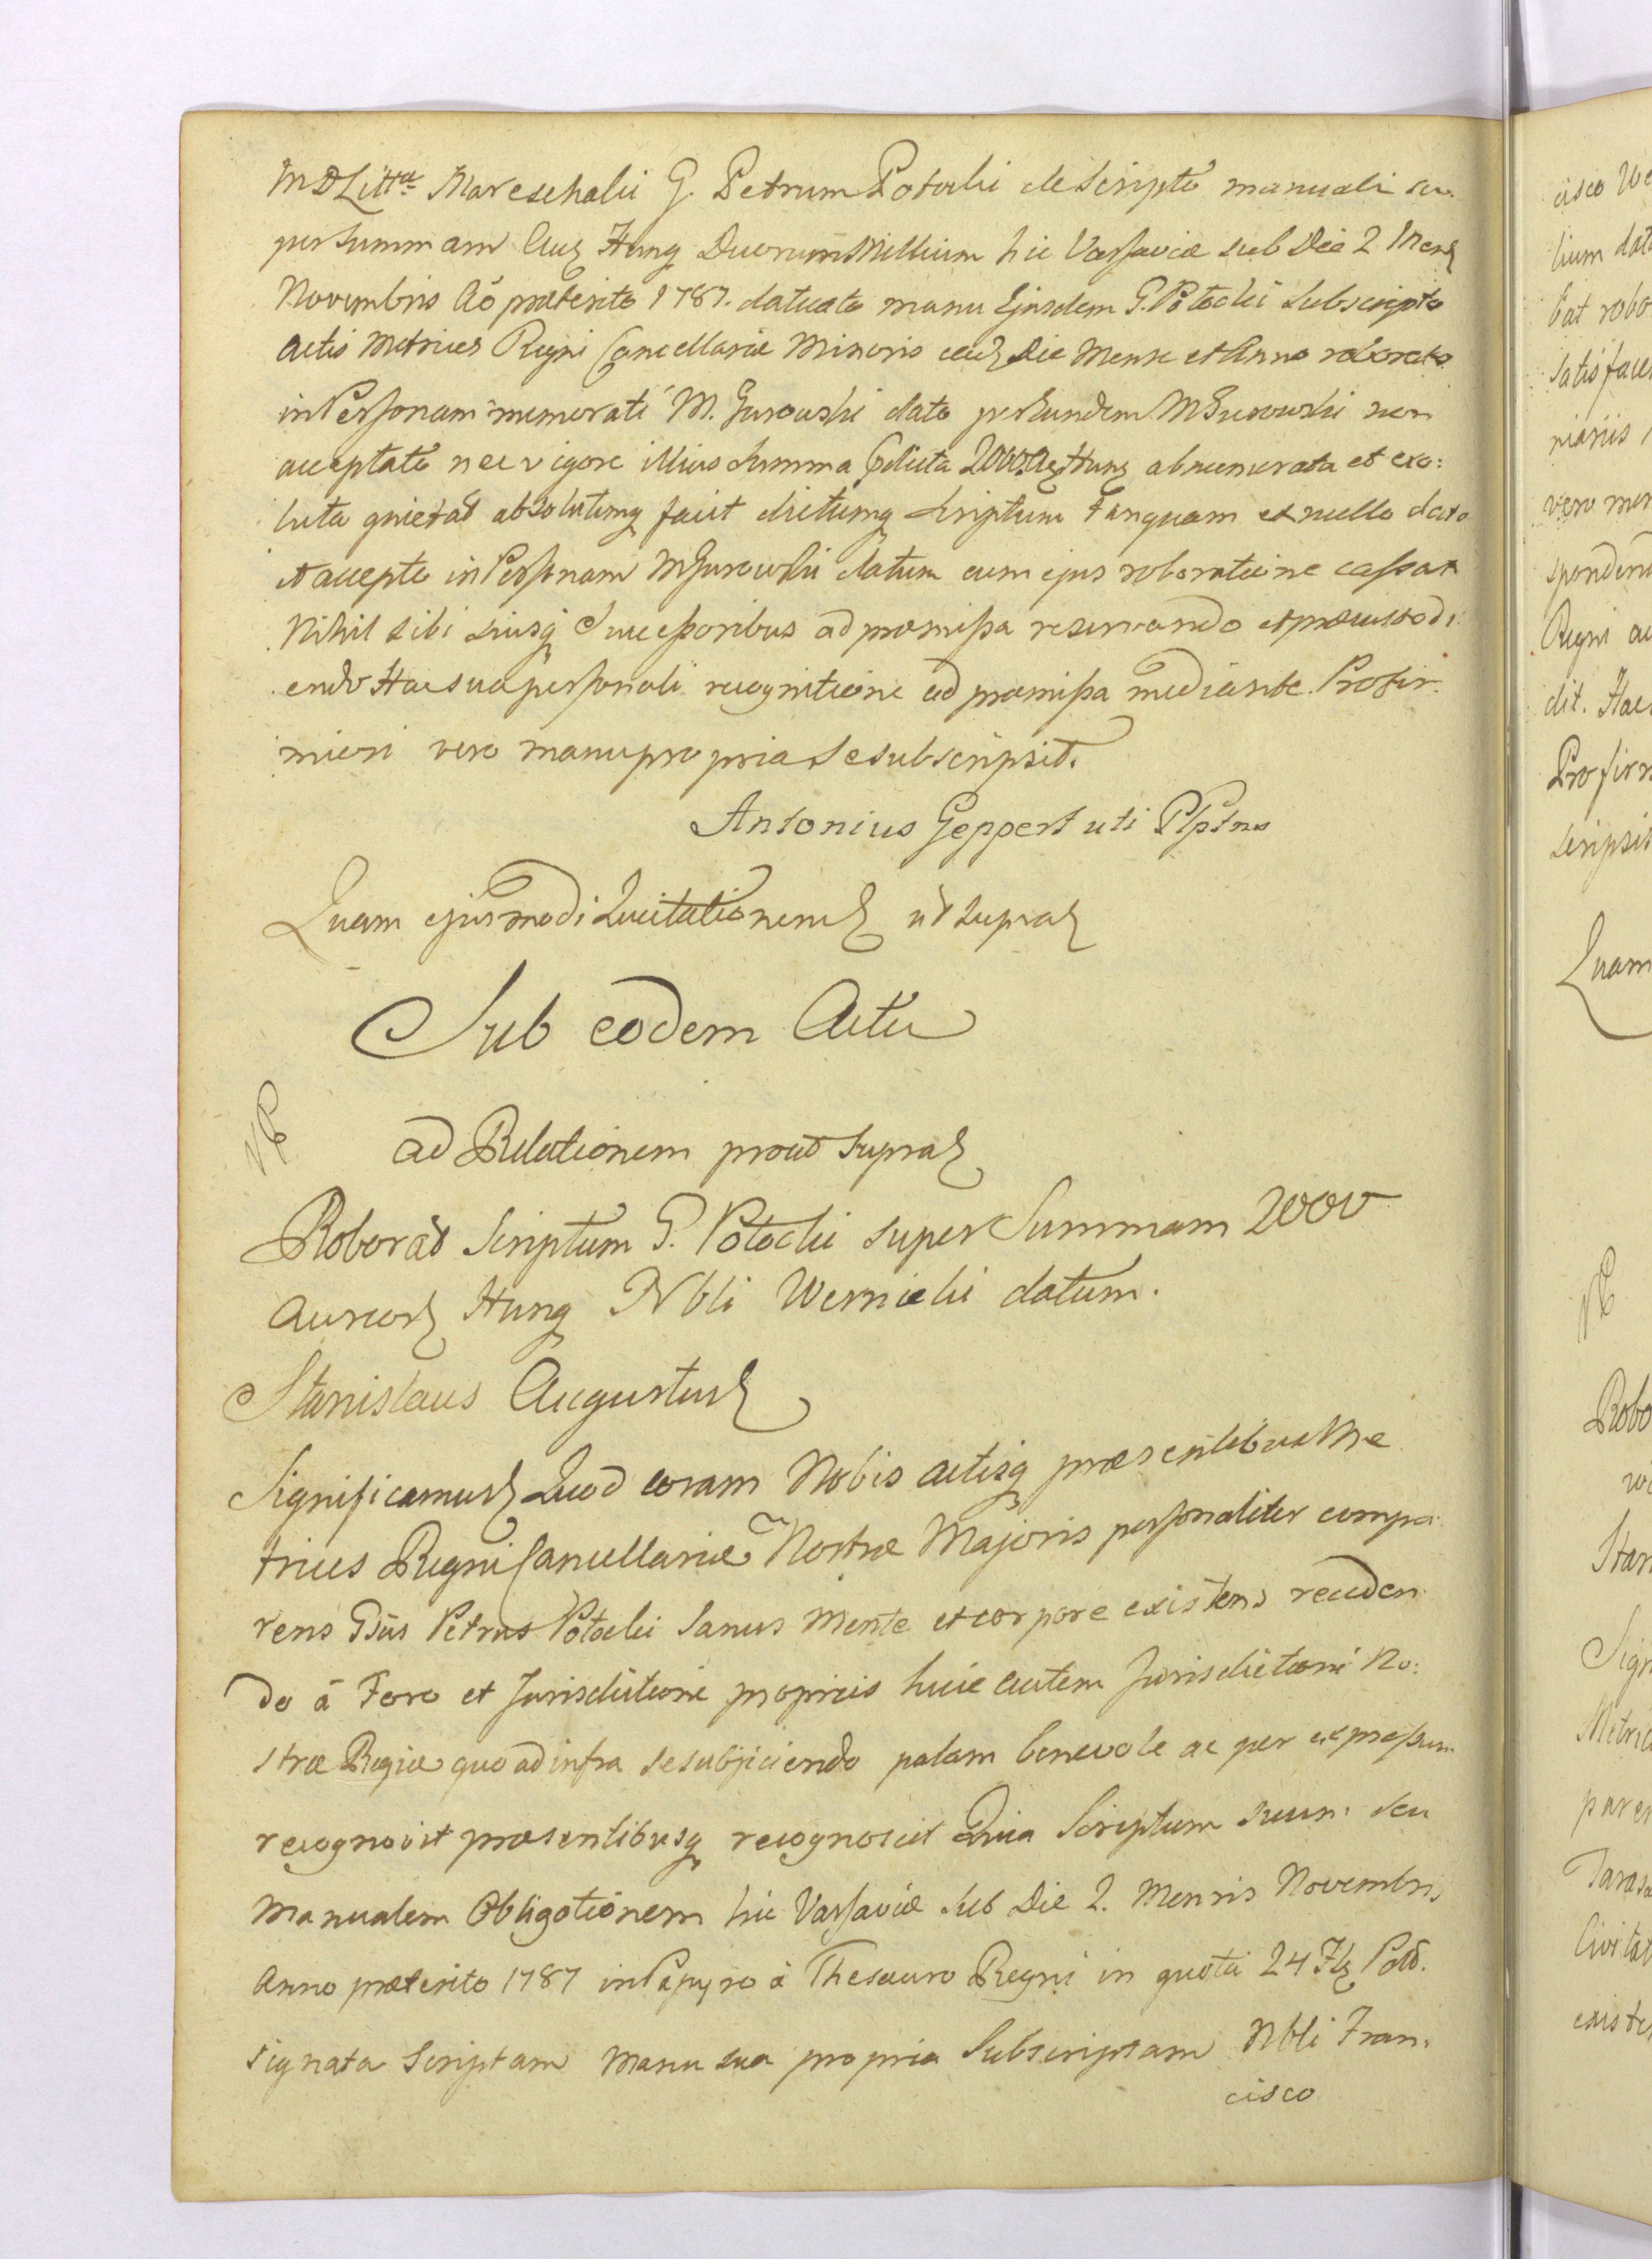 MDLittæ Mareschalii G. Petrum Potocki de Scripto manuali su
per Summam Aur Hung Duorum Millium hic Varsaviæ sub Die 2 Mens
Novembris Aõ præterito 1787. datato manu Ejusdem G. Potocki Subscripto
Actis Metrices Regni Cancellariæ Minoris eadz Die Mense et Anno roborato
in Personam memorati M. Gurowski dato per Eundem M Gurowski non
acceptato nec vigore illius Summa pdicta 2000. Aurz Hung abnumerata et exo:
luta quietat absolutumq facit dictumq Scriptum tanquam ex nullo dato
et accepto in Personam M Gurowski datum cum ejus roboratione cassat
Nihil sibi Suisq Successoribus ad præmissa reservando et præcustodi
endo Hac sua personali recognitione ad præmissa mediante. Pro fir
miori vero manu propria Se subscripsit.
Antonius Geppert uti Plptns
Quam ejusmodi Quietationem ut Supra
Sub eodem Actu
ad Relationem prout Supra
Roborat Scriptum G. Potocki super Summam 2000
Aureor Hung Nbli Wernicki datum.
Stanislaus Augustus
Significamus Quod coram Nobis Actisq præsentibus Me
trices Regni Cancellariæ Nostræ Majoris personaliter compa
rens Gsus Petrus Potocki Sanus Mente et corpore existens receden
do â Foro et Jurisdictione propriis huic autem Jurisdictioni No:
stræ Regiæ quo ad infra se subjiciendo palam benevole ac per expressum
recognovit præsentibusq recognoscit Quia Scriptum Suum seu
Manualem Obligationem hic Varsaviæ Sub Die 2. Mensis Novembris
Anno præterito 1787 in Papyro â Thesauro Regni in quota 24 Flz Pold.
signata Scriptam Manu sua propria Subscriptam Nbli Fran.
cisco